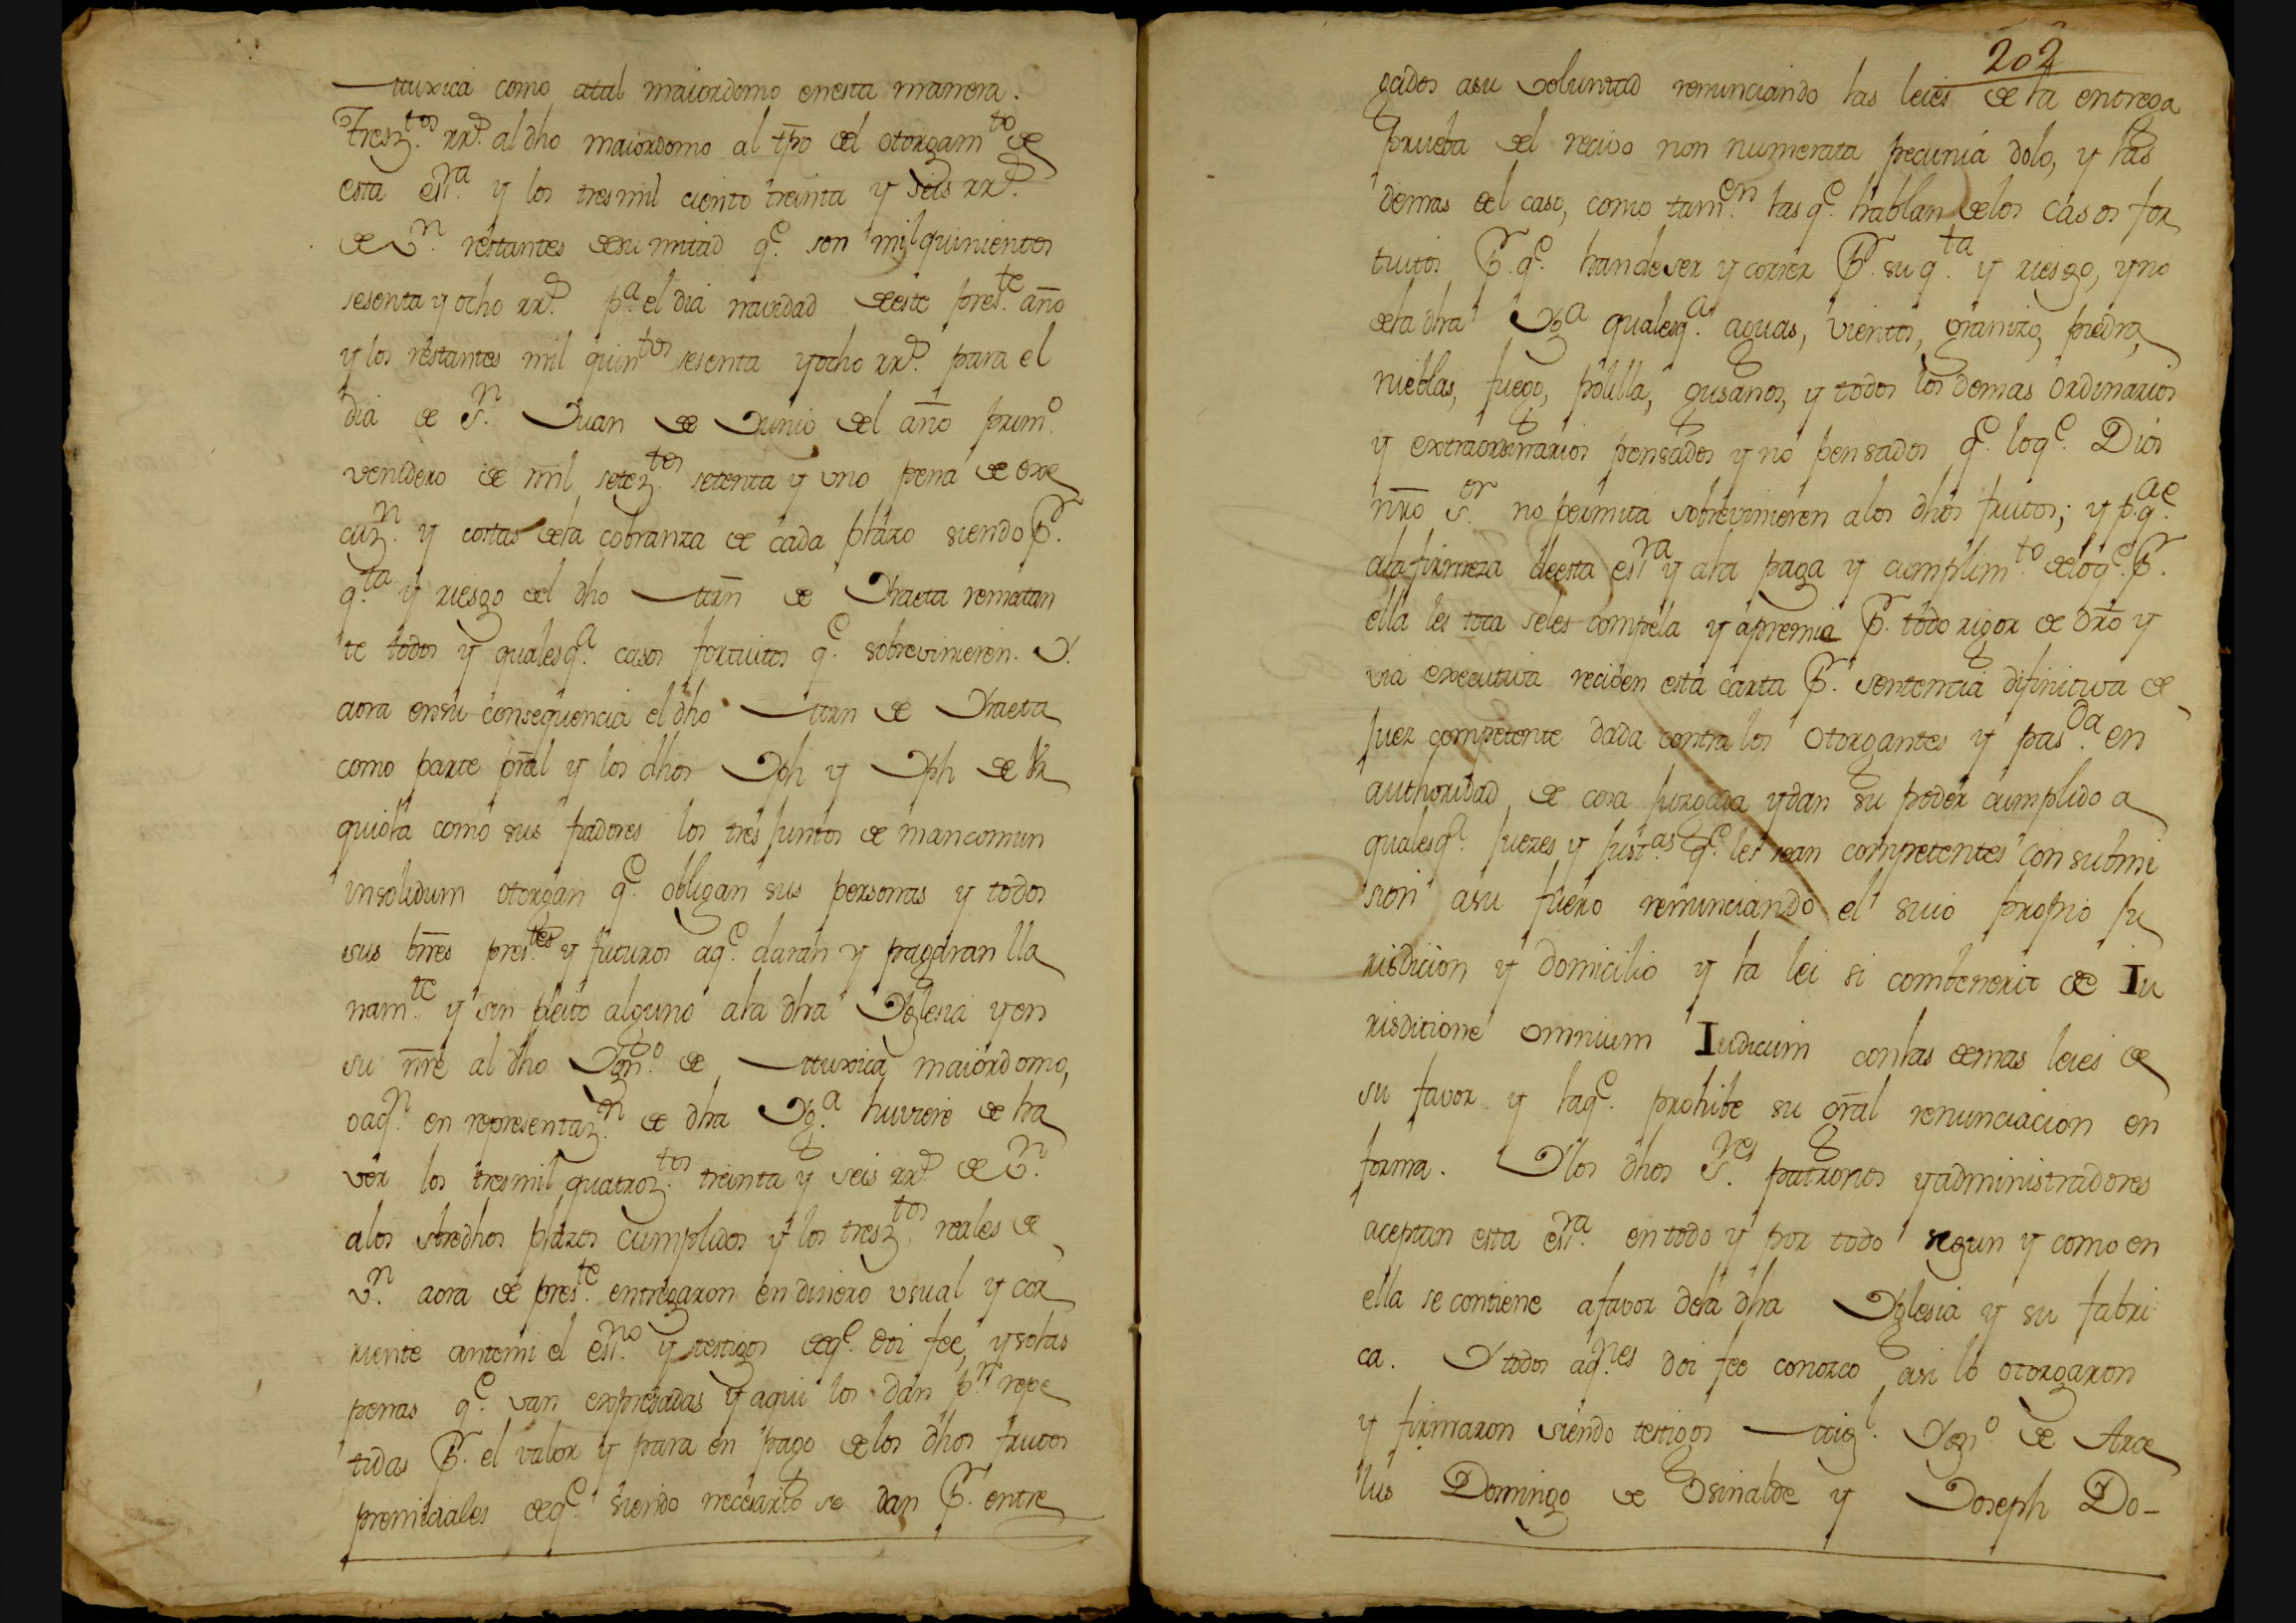 Muxica como atal maiordomo enesta manera.
Tresz.tos rr.s al dho maiordomo al tpo del otorgam.to de
esta esra y los tresmil ciento treinta y seis rr.s
de v.n restantes desu mitad q.e son mil quinientos
sesenta y ocho rr.s p.a el dia navidad deeste pres.te año
y los restantes mil quin.tos sesenta yocho rr.s para el
dia de S.n Juan de Junio del año prim.o
venidero de mil setez.tos setenta y uno pena de exe
cuz.n y costas dela cobranza de cada plazo siendo p.r
q.ta y riesgo del dho Mrn de Yraeta rematan
te todos y qualesq.a casos fortuitos q.e sobrevinieren. Y.
aora ensu consequencia el dho Mrn de Yraeta
como parte pral y los dhos Jph y Jph de
quiola como sus fiadores los tres juntos de mancomun
insolidum otorgan q.e obligan sus personas y todos
sus bnes pres.tes y futuros aq.e daran y pagaran lla
nam.te y sin pleito alguno ala dha Yglesia yen
su nre al dho Ygn.o de Muxica maiordomo,
oaq.n en representaz.n de dha Yg.a huviere de ha
ver los tresmil quatroz.tos treinta y seis rr.s de v.n
alos sbredhos plazos cumplidos y los tresz.tos reales de
v.n aora de pres.te entregaron en dinero usual y cor
riente antemi el esno y testigos deq.e doi fee, y solas
penas q.e van expresadas y aqui los dan p.r repe
tidas p.r el valor y para en pago delos dhos frutos
premiciales deq.e siendo necesario se dan p.r entre
202
gados asu voluntad renunciando las leies dela entrega
prueba del recivo non numerata pecunia dolo, y las
demas del caso, como tam.en las q.e hablan delos casos for
tuitos p.r q.e hande ser y correr p.r su q.ta y riesgo, yno
dela dha Yg.a qualesq.a aguas, vientos, granizo, piedra,
nieblas, fuego, polilla, gusanos, y todos los demas ordinarios
y extraordinarios pensados y no pensados q.e loq.e Dios
nro S.or no permita sobrevinieren alos dhos frutos; y p.a q.e
ala firmeza deesta esra y ala paga y cumplim.to deloq.e p.r
ella les toca seles compela y apremia p.r todo rigor de dro y
via executiva reciden esta carta p.r sentencia difinitiva de
juez competente dada contra los otorgantes y pas.da en
authoridad de cosa juzgada ydan su poder cumplido a
qualesq.a juezes y just.as q.e les sean competentes con submi
sion asu fuero renunciando el suio propio ju
risdicion y domicilio y la lei si combenerit de Iu
risditione omnium Iudicum conlas demas leies de
su favor y laq.e prohibe su gral renunciacion en
forma. Ylos dhos S.res patronos yadministradores
aceptan esta esra. entodo y por todo segun y como en
ella se contiene afavor dela dha Yglesia y su fabri
ca. Ytodos aq.nes doi fee conozco asi lo otorgaron
y firmaron siendo testigos Mig.l Ygn.o de Arce
lus Domingo de Osinalde y Joseph Do-